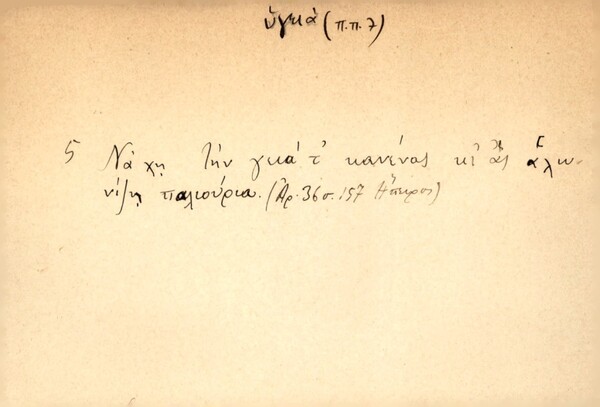 ὑγειά (π.π. 7)
5 Νά χῃ τήν γκιά τ' κανένας κι ἄς ἁλω-
νίζῃ παλιούρια. (Ἀρ. 36 σ. 157 Ἤπειρος)